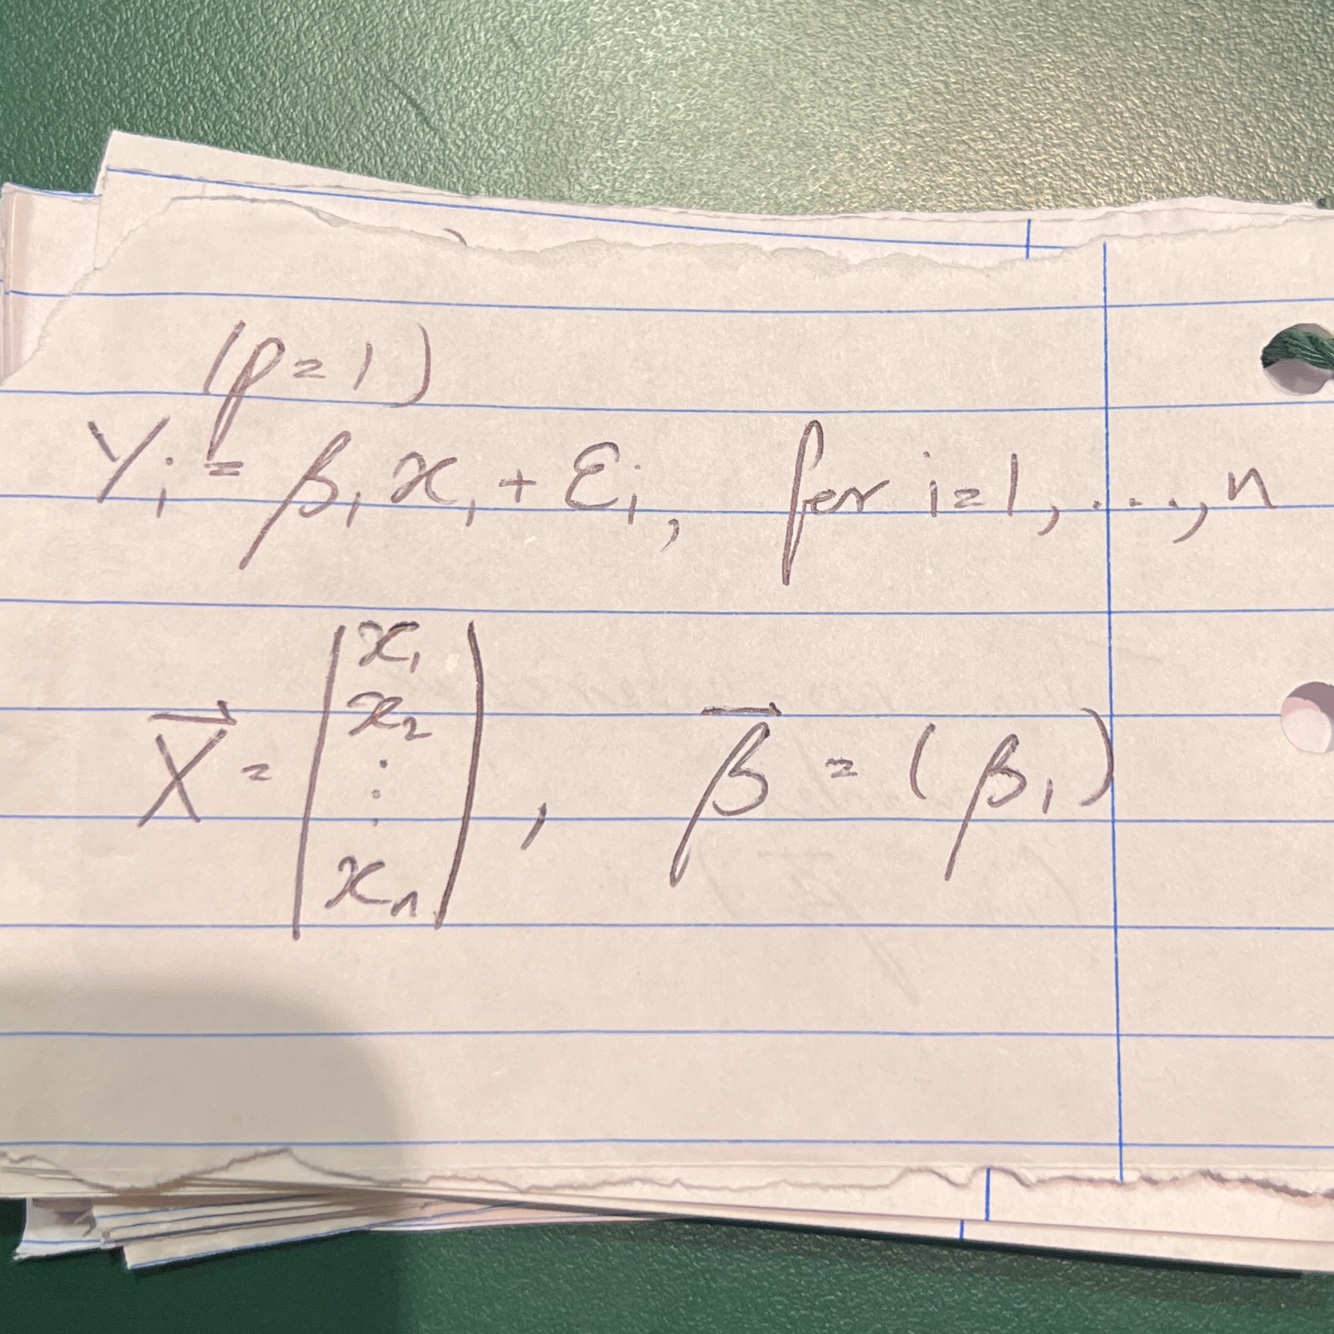 (p=1)
Yᵢ = β₁x₁ + εᵢ, for i=1, ..., n
X⃗ = (x₁ x₂ ⋮ xₙ), β⃗ = (β₁)